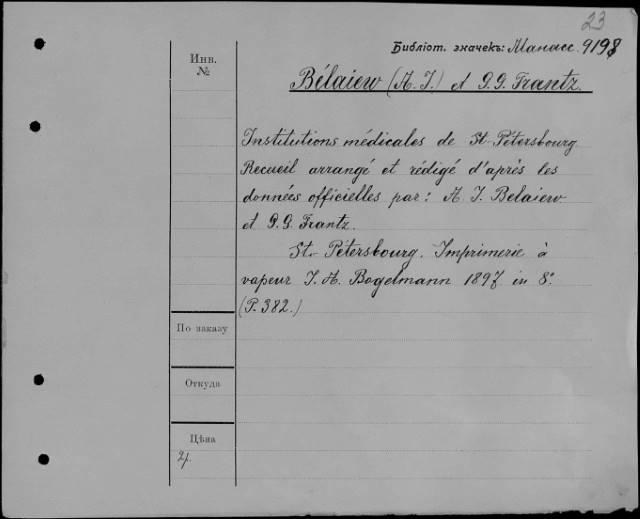 23
Библіот. значекъ: Манасс. 9198
Инв.
№
Bélaiew (A. J.) et P. G. Frantz.
Institutions médicales de St-Pétersbourg
Recueil arrangé et rédigé d'après les
données officielles par: A. J. Belaiew
et P. G. Frantz.
St-Pétersbourg. Imprimerie à
vapeur J. A. Bogelmann 1897 in 8°
(P. 382.)
По заказу
Откуда
Цѣна